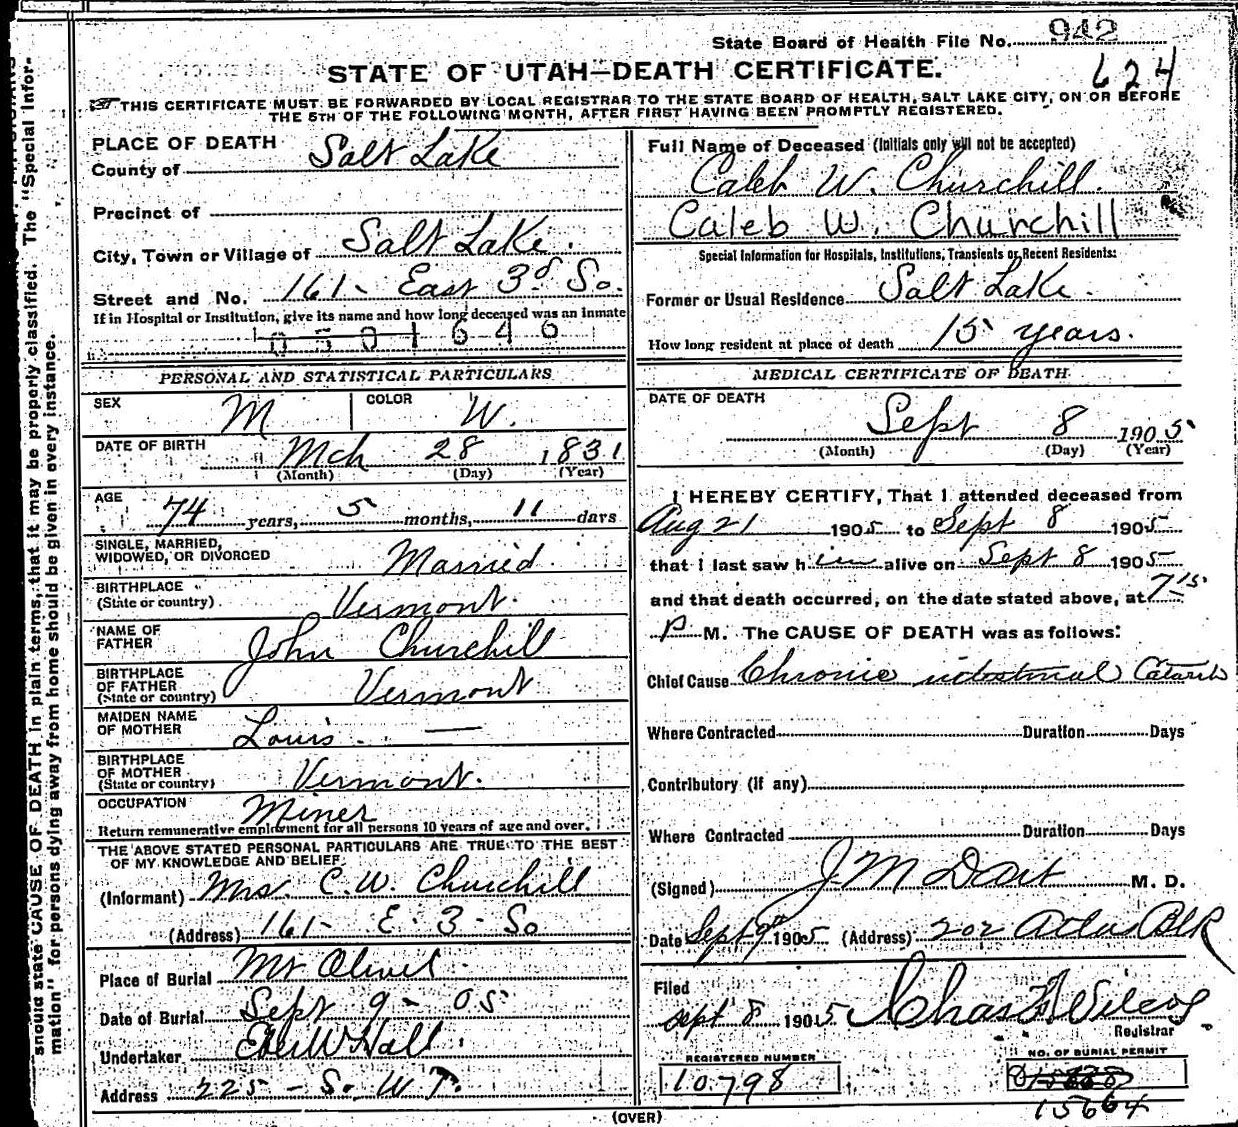 State Board of Health File No. 942
624
STATE OF UTAH—DEATH CERTIFICATE.
THIS CERTIFICATE MUST BE FORWARDED BY LOCAL REGISTRAR TO THE STATE BOARD OF HEALTH, SALT LAKE CITY, ON OR BEFORE
THE 5TH OF THE FOLLOWING MONTH, AFTER FIRST HAVING BEEN PROMPTLY REGISTERED.
PLACE OF DEATH
County of Salt Lake
Precinct of
City, Town or Village of Salt Lake.
Street and No. 161- East 3d So.
If in Hospital or Institution, give its name and how long deceased was an inmate
0501646
PERSONAL AND STATISTICAL PARTICULARS
SEX M COLOR W.
DATE OF BIRTH Mch 28 1831
(Month) (Day) (Year)
AGE
74 years, 5 months, 11 days
SINGLE, MARRIED,
WIDOWED, OR DIVORCED Married.
BIRTHPLACE
(State or country) Vermont.
NAME OF
FATHER John Churchill
BIRTHPLACE
OF FATHER
(State or country) Vermont
MAIDEN NAME
OF MOTHER Louis. —
BIRTHPLACE
OF MOTHER
(State or country) Vermont.
OCCUPATION Miner
Return remunerative employment for all persons 10 years of age and over.
THE ABOVE STATED PERSONAL PARTICULARS ARE TRUE TO THE BEST
OF MY KNOWLEDGE AND BELIEF.
(Informant) Mrs. C. W. Churchill
(Address) 161- E. 3- So
Place of Burial Mt Olivet
Date of Burial Sept 9- 05
Undertaker Eber W Hall.
Address 225 - S. W T.
Full Name of Deceased (Initials only will not be accepted)
Caleb W. Churchill.
Caleb W. Churchill
Special Information for Hospitals, Institutions, Transients or Recent Residents:
Former or Usual Residence Salt Lake.
How long resident at place of death 15 years.
MEDICAL CERTIFICATE OF DEATH
DATE OF DEATH
Sept 8 1905
(Month) (Day) (Year)
I HEREBY CERTIFY, That I attended deceased from
Aug 21 1905 to Sept 8 1905
that I last saw him alive on Sept 8 1905
and that death occurred, on the date stated above, at 7 15
P M. The CAUSE OF DEATH was as follows:
Chief Cause Chronic intestinal Catarrh
Where Contracted Duration Days
Contributory (if any)
Where Contracted Duration Days
(Signed) J M Dart M. D.
Date Sept 9th 1905 (Address) 202 Atlas Blk
Filed
Sept 8 1905 Chas F Wilcox
Registrar
REGISTERED NUMBER
10798
NO. OF BURIAL PERMIT
15664
(OVER)
should state CAUSE OF DEATH in plain terms, that it may be properly classified. The "Special Infor-
mation" for persons dying away from home should be given in every instance.